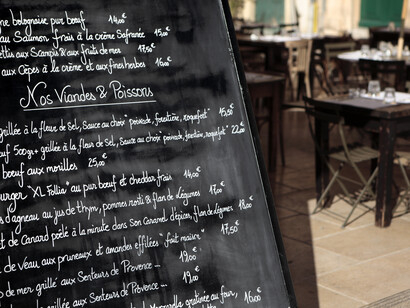 ne bolognaise pur bœuf 14,00€
au Saumon frais à la crème Safranée 15,50€
ettis aux Scampis & aux fruits de mer 17,50€
aux Cèpes à la crème et aux fines herbes 16,00€
Nos Viandes & Poissons
grillée à la fleure de Sel, Sauce au choix "poivrade, forestière, roquefort" 15,50€
uf 500gr+ grillée à la fleure de Sel, Sauce au choix "poivrade, forestière, roquefort" 22,00€
bœuf aux morilles 25,00€
urger "XL Follia" au pur bœuf et cheddar frais 14,00€
s d'agneau au jus de thym, pommes rosti & flan de Légumes 17,00€
t de Canard poêlé à la minute dans Son Caramel d'épices, flan de légumes 18,00€
de Veau aux pruneaux et amandes effilées "fait maison" 17,50€
de mer grillé aux Senteurs de Provence 19,00€
grillée aux Senteurs de Provence 19,00€
gratinée au four, 16,00€